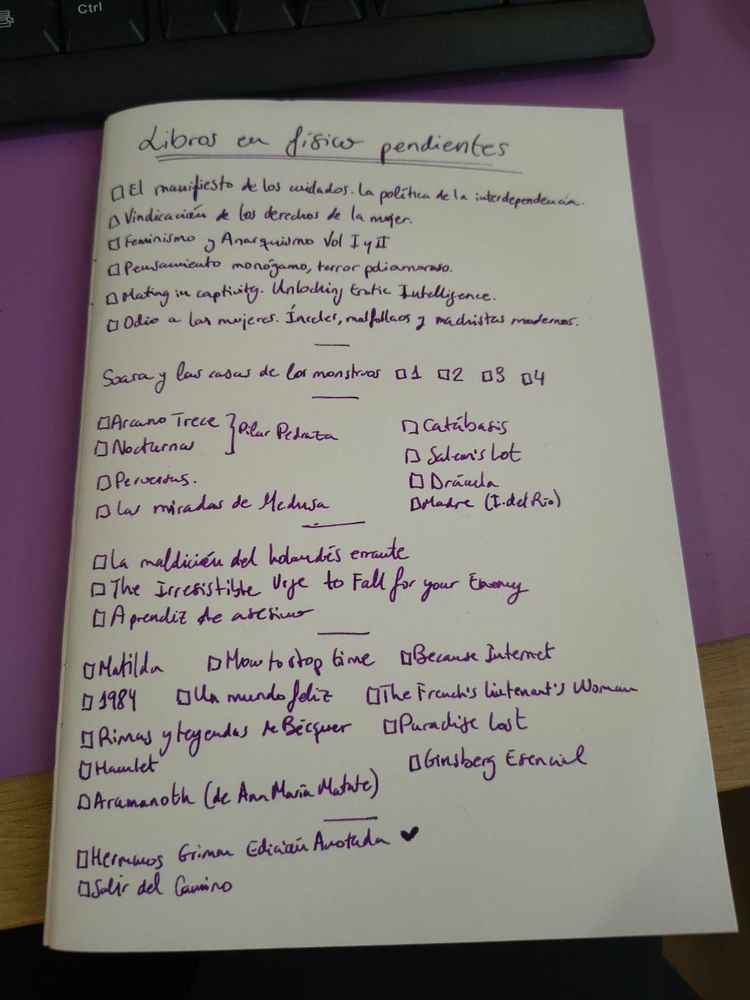 Ctrl
Libros en físico pendientes
□ El manifiesto de los cuidados. La política de la interdependencia.
□ Vindicación de los derechos de la mujer.
□ Feminismo y Anarquismo Vol I y II
□ Pensamiento monógamo, terror poliamoroso.
□ Mating in captivity. Unlocking Erotic Intelligence.
□ Odio a las mujeres. Ínceles, malfollaos y machistas modernos.
Soara y las casas de los monstruos □ 1 □ 2 □ 3 □ 4
□ Arcano Trece
□ Nocturnas
Pilar Pedraza
□ Perversas.
□ Las miradas de Medusa
□ Catábasis
□ Salem's Lot
□ Drácula
□ Madre (I. del Río)
□ La maldición del holandés errante
□ The Irresistible Urge to Fall for your Enemy
□ Aprendiz de asesino
□ Matilda □ How to stop time □ Because Internet
□ 1984 □ Un mundo feliz □ The French's lieutenant's Woman
□ Rimas y leyendas de Bécquer □ Paradise Lost
□ Hamlet □ Ginsberg Esencial
□ Aramanoth (de Ana María Matute)
□ Hermanos Grimm Edición Anotada ♥
□ Salir del Camino